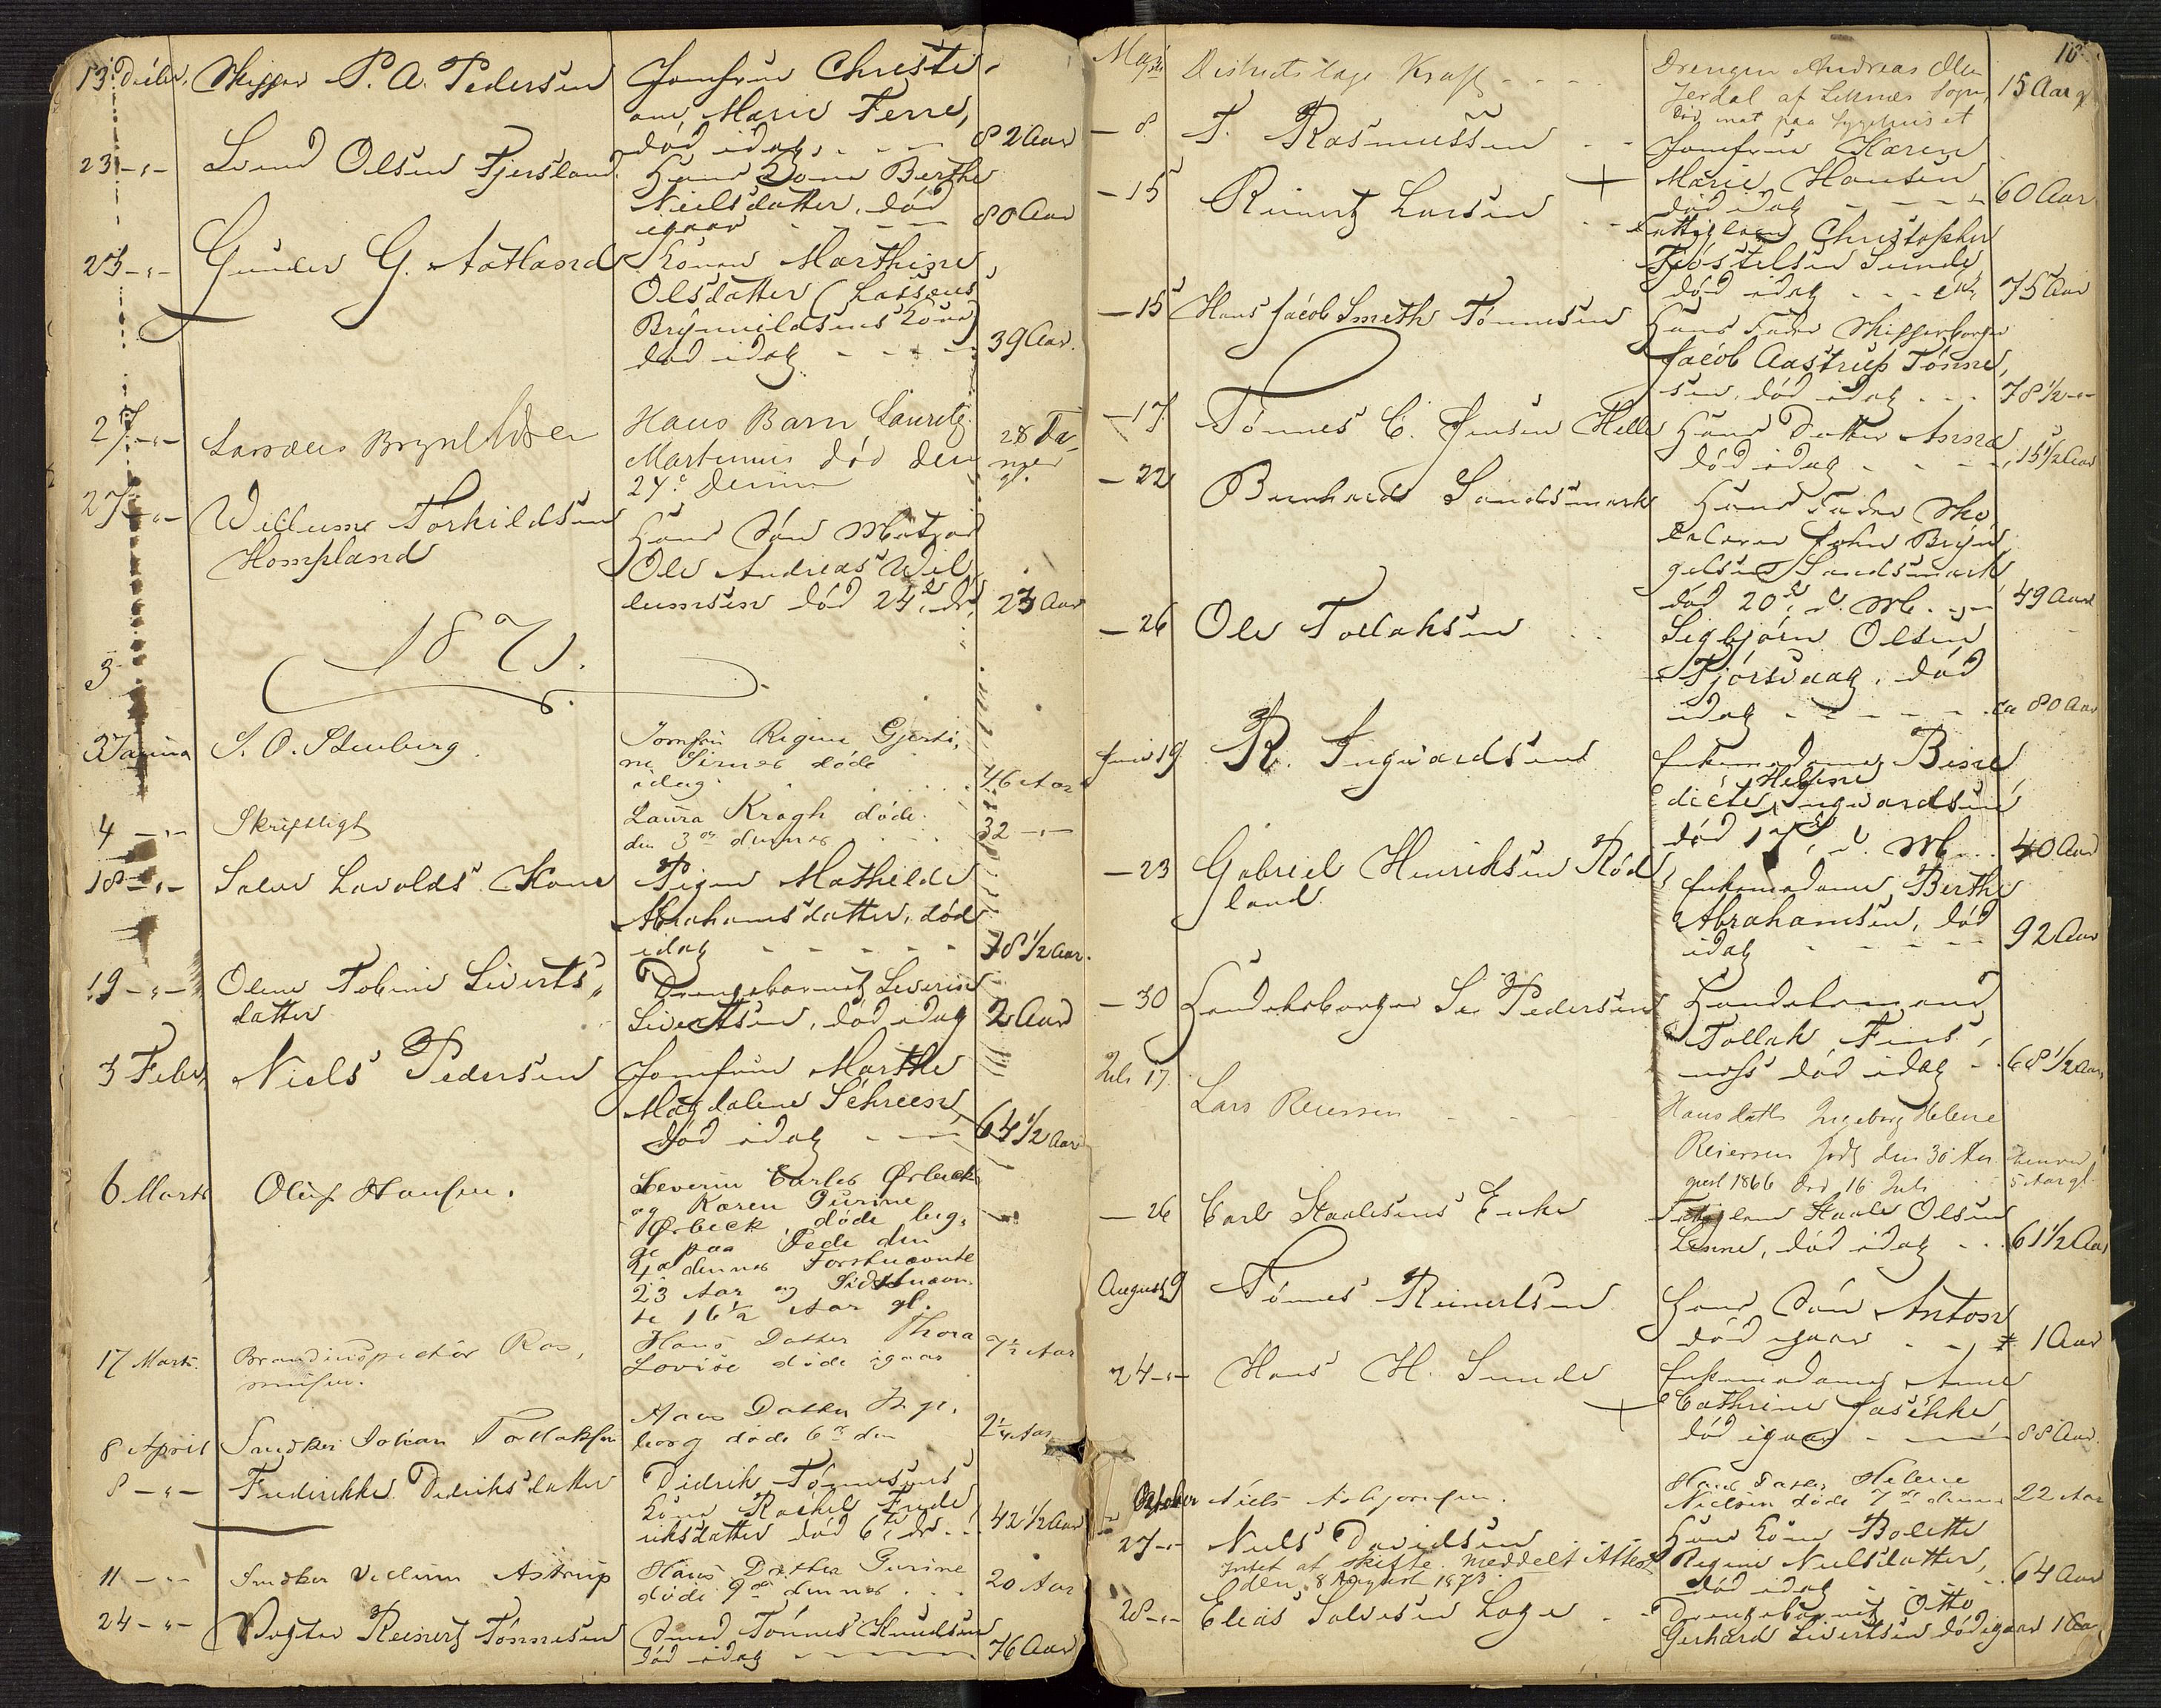 13 Decbr. Skipper P. A. Pedersen Jomfrue Christi-
ane Marie Ferre,
død idag 82 Aar
23 - " - Svend Olsen Fjersland Hans Kone Berthe
Nielsdatter, død
igaar 80 Aar
23 - " - Gunder G. Aatland Konen Marthine
Olsdatter (Lassens
Brynnildsens Kone)
død idag 39 Aar
27 - " - Hans Barn Lauritz
Martinius død den
24de dennes
27 - " - Willume Torkildsen Hans Søn Matros
Hompland Ole Andreas Wil-
lumsen død 24de ds. 23 Aar
1871.
3
3 Janua S. O. Stenberg. Jomfru Regine Gjerti-
ne Sirnes døde
idag 46 Aar
4 - " - Skriftligt Laura Kragh døde
den 3de dennes 32 - " -
18 - " - Salve Lavolds Kone Pigen Mathilde
Abrahamsdatter, død
idag 18 1/2 Aar
19 - " - Olene Tobine Siverts- Drengebarnet Severin
datter Sivertsen, død idag 2 Aar
3 Febr. Niels Pedersen Jomfrue Marthe
Magdalene Schreen,
død idag 64 1/2 Aar
6 Marts Oluf Hansen. Severin Carles Ørbeck
og Karen Gurine
Ørbeck, døde beg-
ge paa Fede den
4de dennes Førstnævnte
23 Aar og Sidstnævn-
te 16 1/2 Aar gl.
17 Marts. Brandinspectør Ras- Hans Datter Thora
musen. Lovise døde igaar 7 1/2 Aar
8 April Snedker Johan Tollaksen Hans Datter Inge-
borg døde 6te den 2 1/4 Aar
8 - " - Frederikke Didriksdatter Didrik Tønnesens
Kone Rachel Frede-
riksdatter død 6te ds. 42 1/2 Aar
11 - " - Snedker Vellum Astrup Hans Datter Gurine
døde 9de dennes 20 Aar
24 - " - Vægter Reinert Tønnesen Smed Tønnes Knudsen
død idag 76 Aar
18
Maj Districtslæge Kraft Drengen Andreas
Jerdal af Liknes Sogn,
død inat paa Sygehuset 15 Aar gl
- 8 T. Rasmussen Jomfrue Karen
Marie Hansen
død idag 60 Aar
- 15 Reinert Larsen Fattiglem Christopher
Tjøstelsen Sunde
død idag 75 Aar
- 15 Hans Jacob Smith Tønnesen Hans Fader Skipperborger
Jacob Aastrup Tønne-
sen, død idag 78 1/2 - " -
- 17 Tønnes C. Jensen Helle Hans Datter Anna
død idag 15 1/2 Aar
- 22 Bernhard Sandsmark Hans Fader Sko-
John Bryn-
gelsen Sandsmark
død 20de d. M. 49 Aar
- 26 Ole Tollaksen Sigbjørn Olsen
Fjørsvaag, død
idag ca 80 Aar
Juni 19 R. Ingvardsen Enkemadame Bene-
Helene
dicte Ingvardsen
død 17de d. M. 40 Aar
- 23 Gabriel Henriksen Rød- Enkemadame Berthe
land Abrahamsen, død
idag 92 Aar
- 30 Handelsborger Pedersen Handelsmand
Tollak Fins-
næss død idag 68 1/2 Aar
Juli 17 Lars Reiersen Hans datter Ingeborg Helene
Reiersen født den 30 Au-
gust 1866 død 16 Juli 5 Aar gl.
- 26 Carl Staalesens Enke Fattiglem Staale Olsen
Lenne, død idag 61 1/2 Aar
August 9 Tønnes Reinertsen Hans Søn Anton
død igaar 1 Aar
24 - " - Hans H. Sunde Enkemadame Anne
Cathrine
død igaar 88 Aar
October Niels Asbjørnsen. Hans Datter Helene
Nielsen døde 7de dennes 22 Aar
27 - " - Niels Davidsen Hans Kone Bolette
Intet at skifte. Meddelt Attest Regine Nielsdatter,
den 8 August 1873. død idag 64 Aar
28 - " - Elias Salvesen Loge Drengebarnet Otto
Gerhard Sivertsen død igaar 1 Aar